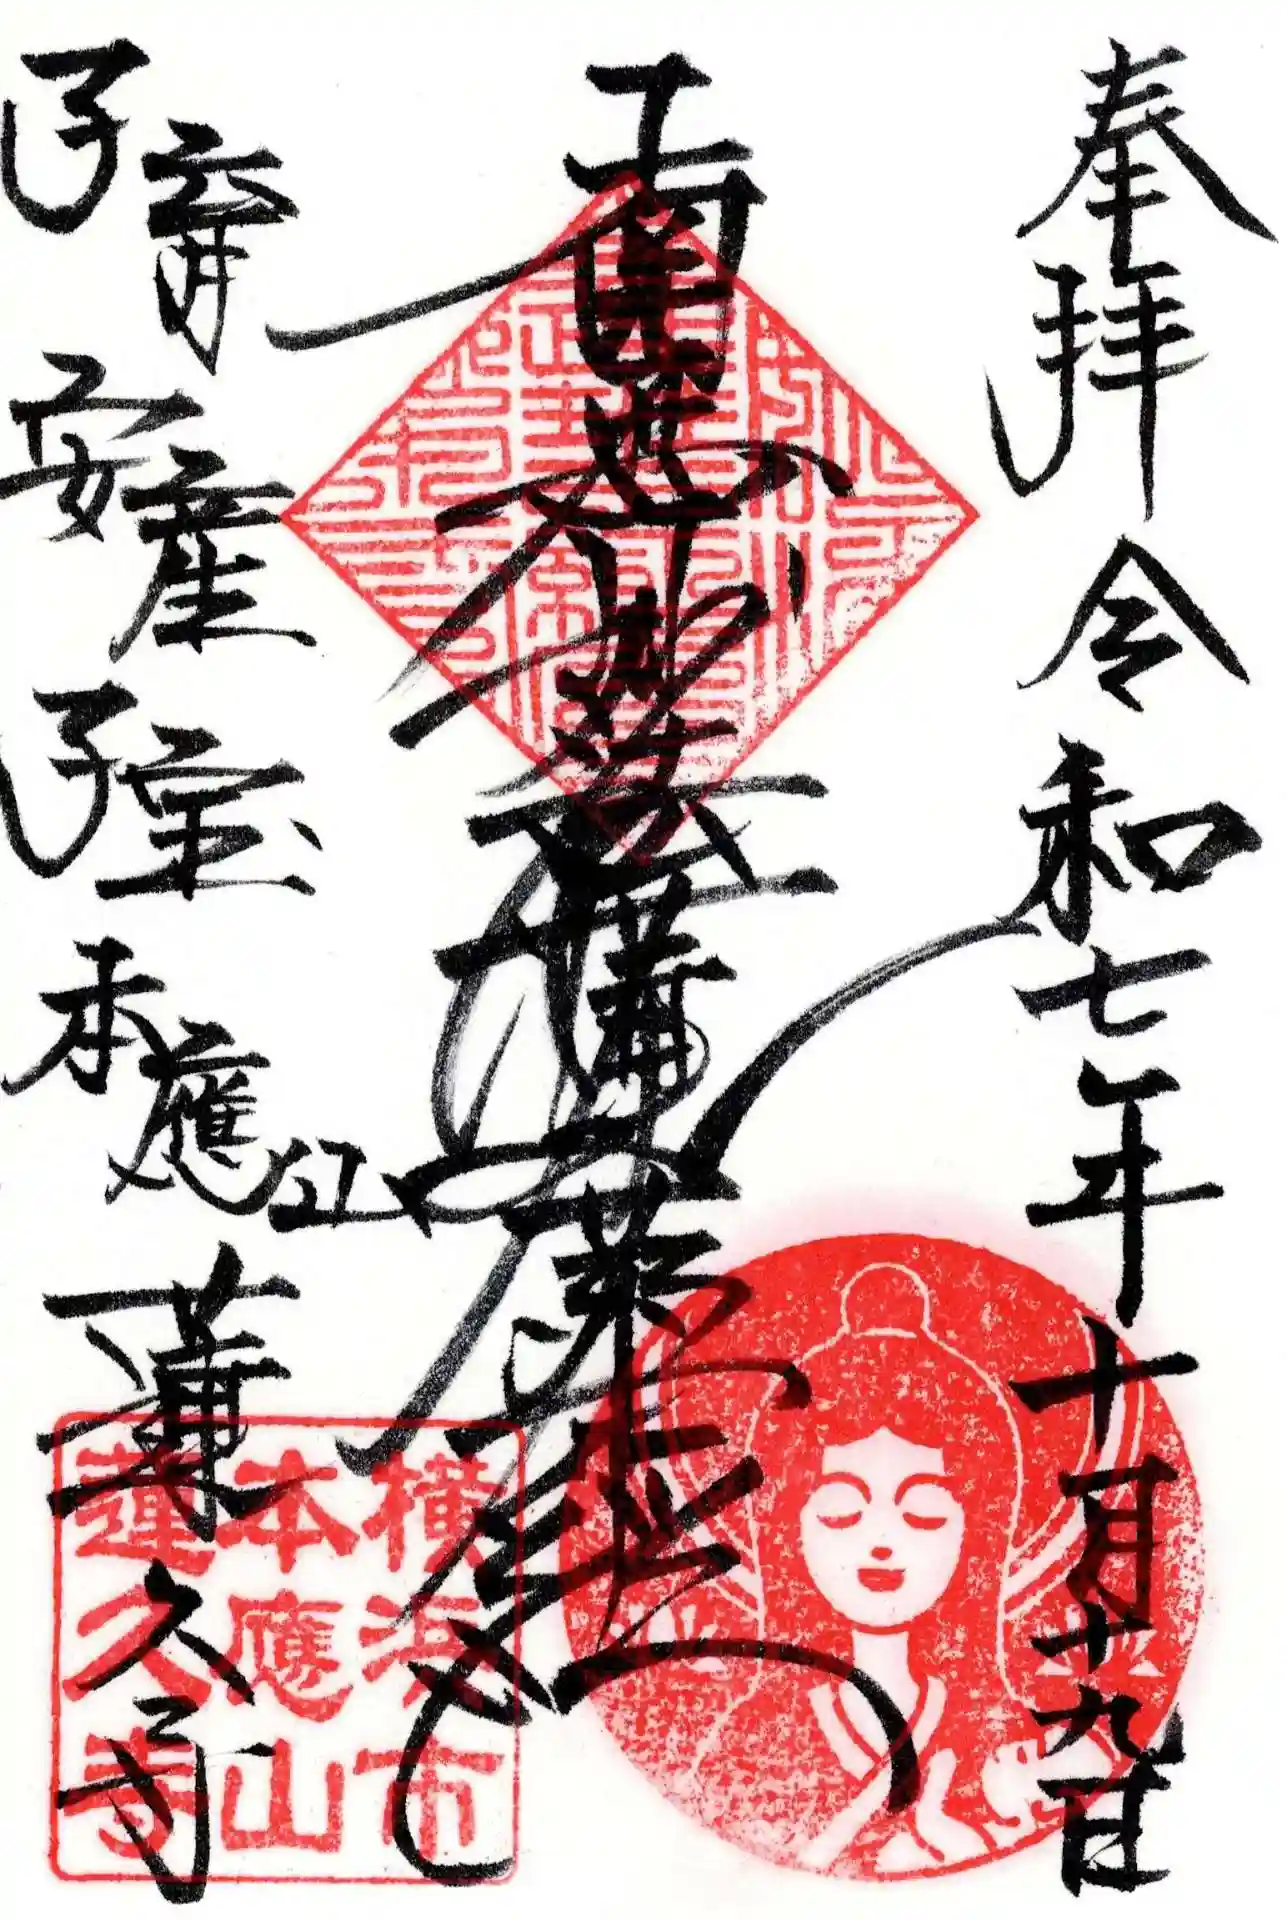 奉拝 令和七年十月十九日
南無妙法蓮華経
子育 安産 子宝 本應山 蓮久寺
横浜市
本應山
蓮久寺